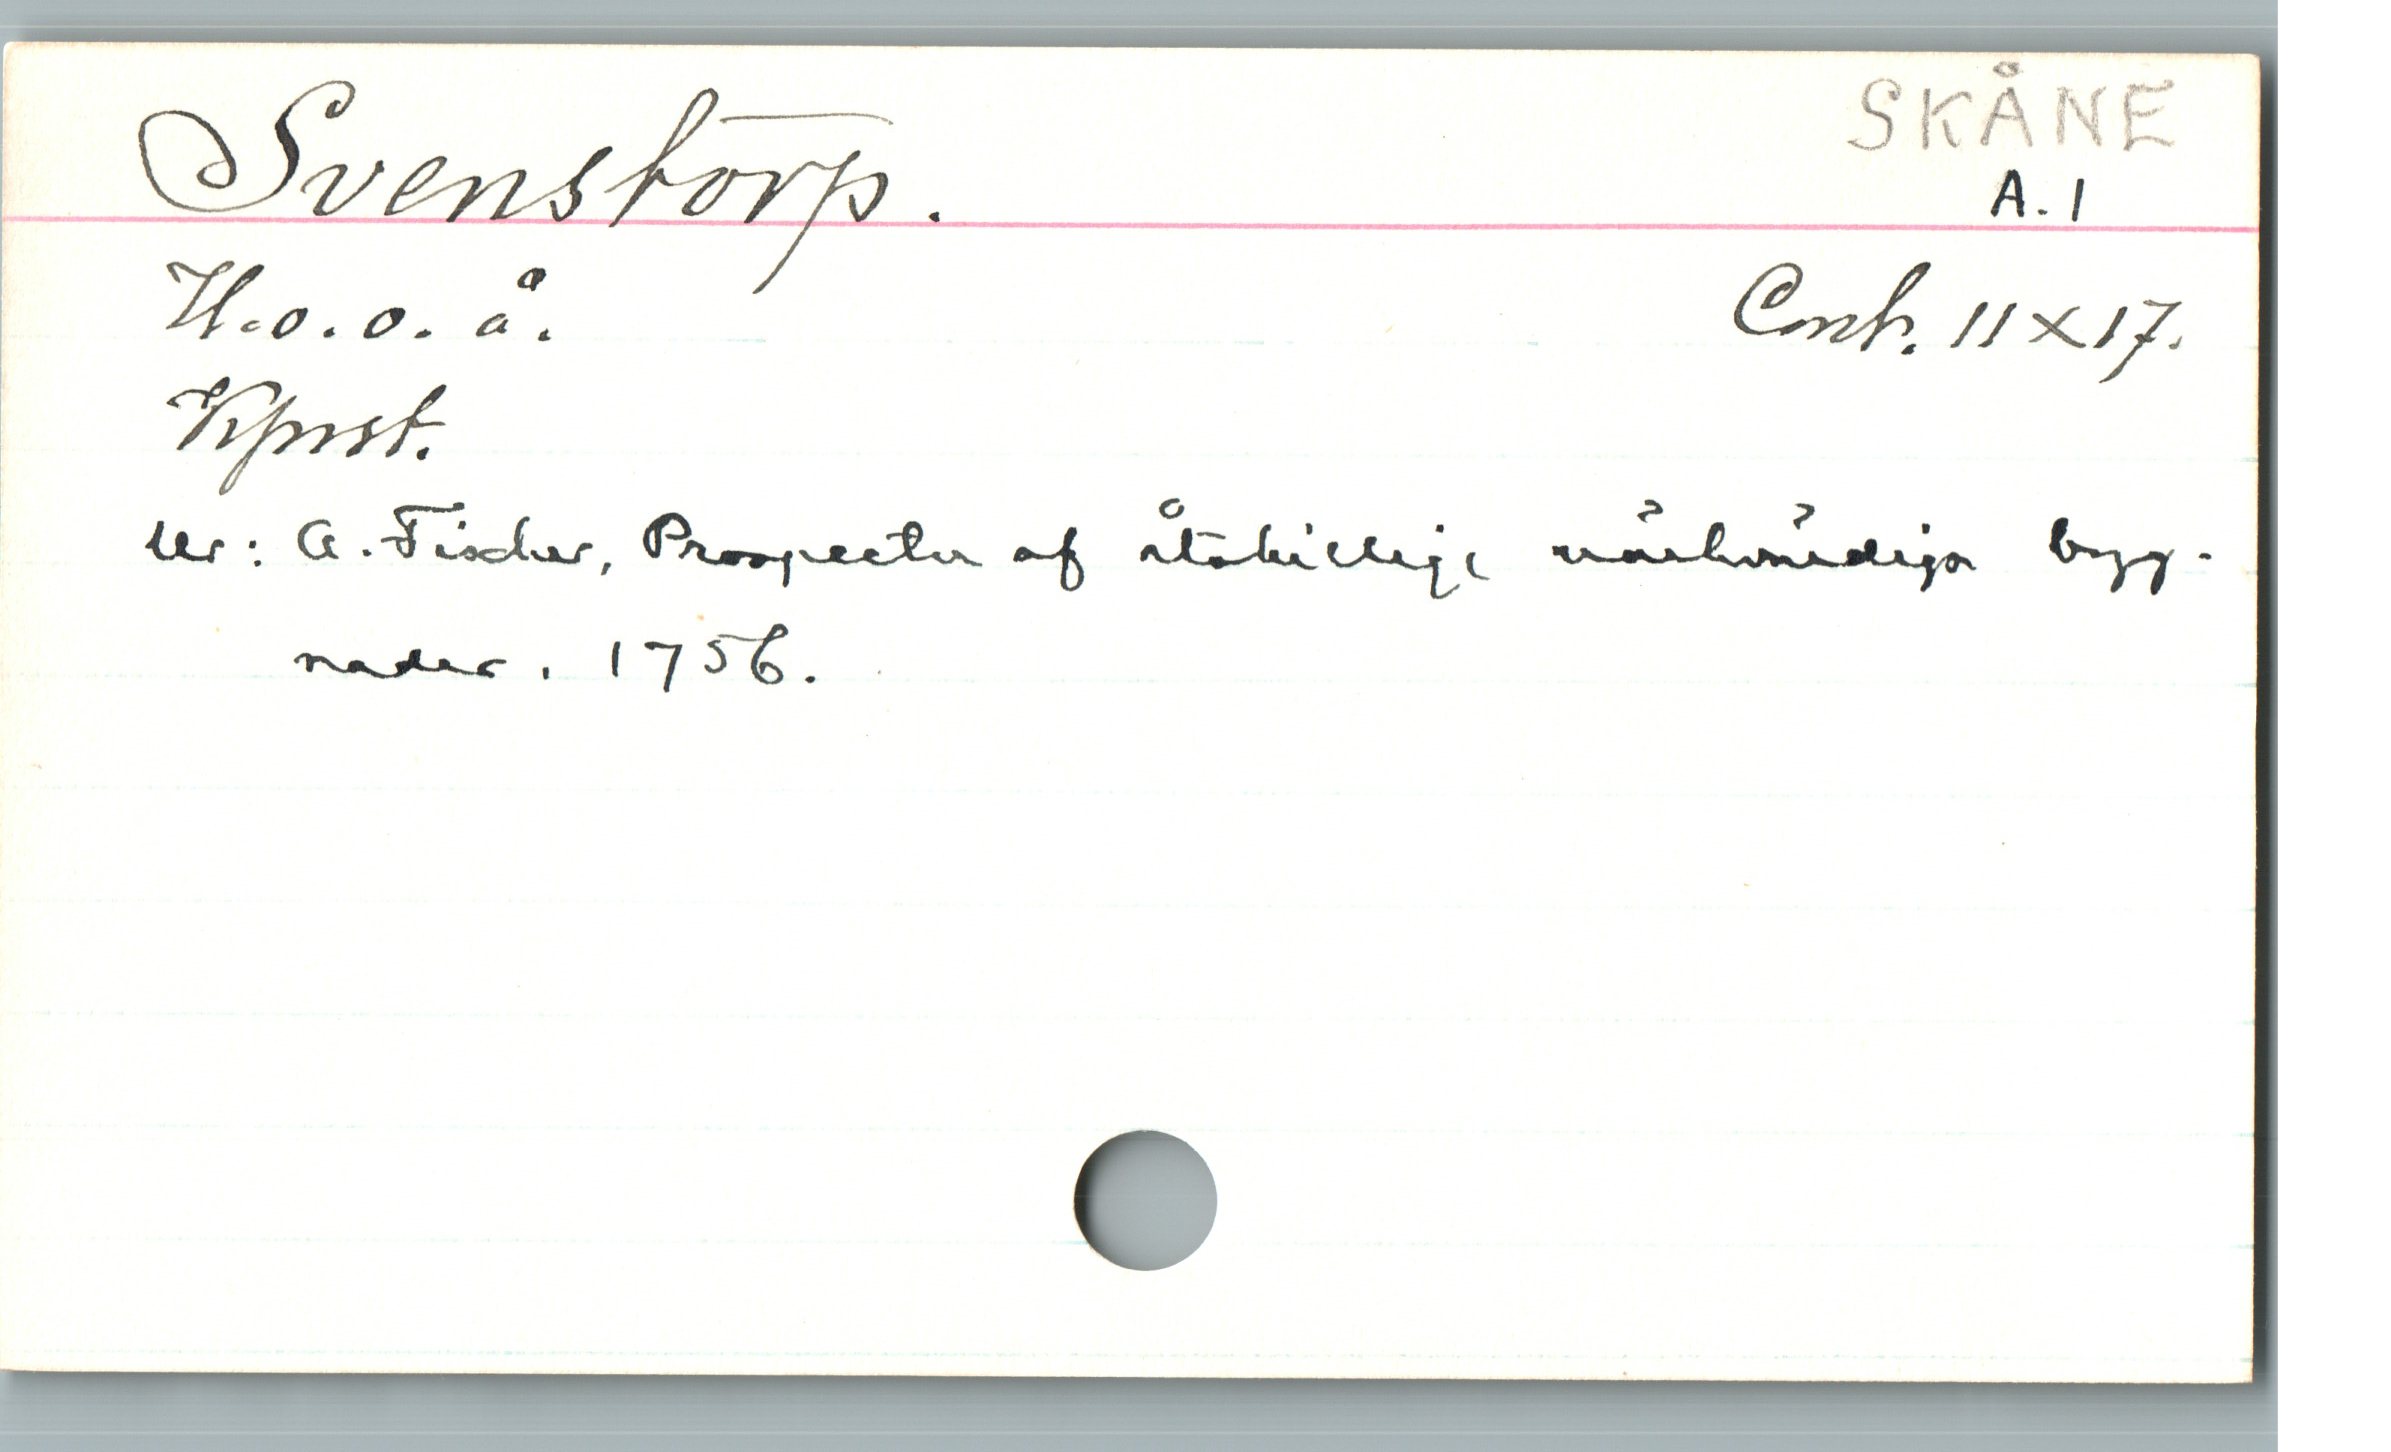 Svenstorp.
SKÅNE
A. 1
U. o. o. å.
Omkr. 11 x 17.
Kprst.
Ur: A. Fischer, Prospecter af åtskillige märkvärdiga bygg-
nader. 1756.